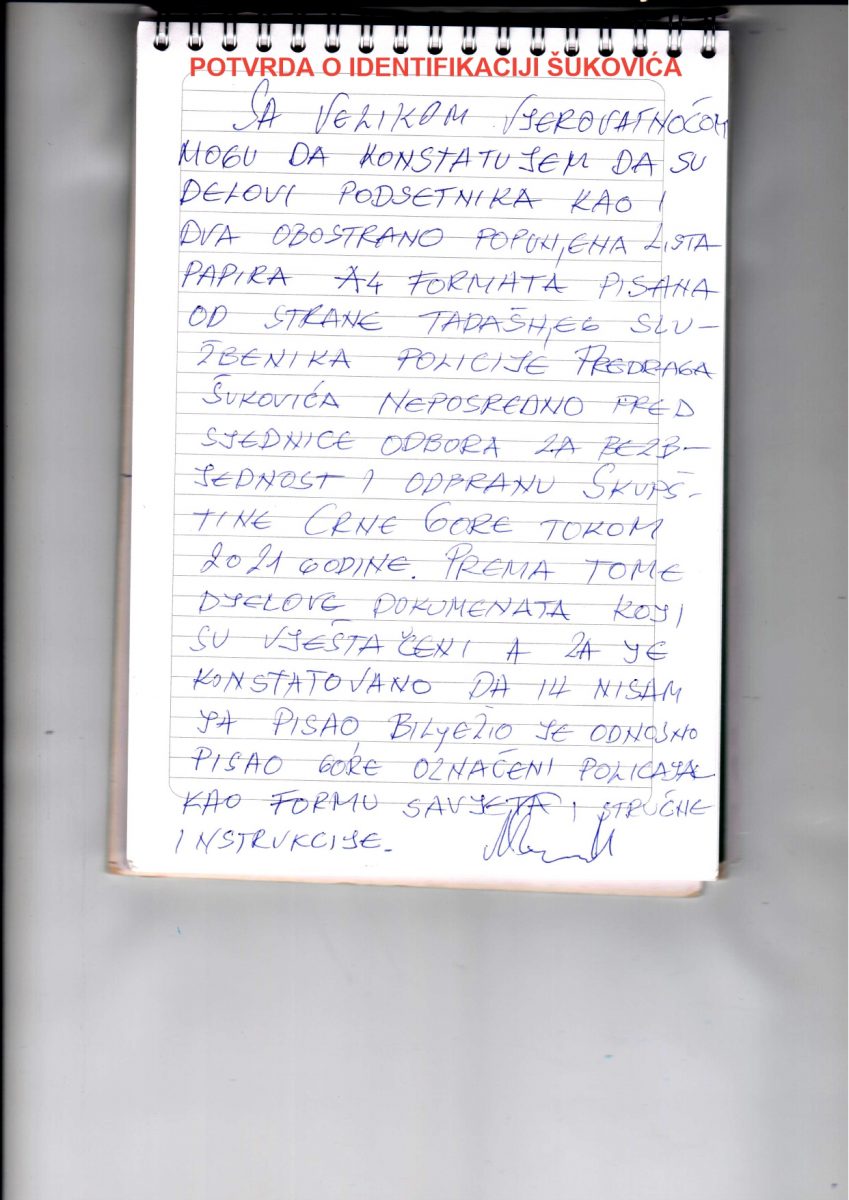 POTVRDA O IDENTIFIKACIJI ŠUKOVIĆA
SA VELIKOM VJEROVATNOĆOM
MOGU DA KONSTATUJEM DA SU
DELOVI PODSETNIKA KAO I
DVA OBOSTRANO POPUNJENA LISTA
PAPIRA A4 FORMATA PISANA
OD STRANE TADAŠNJEG SLU-
ŽBENIKA POLICIJE PREDRAGA
ŠUKOVIĆA NEPOSREDNO PRED
SJEDNICE ODBORA ZA BEZB-
JEDNOST I ODBRANU SKUPŠ-
TINE CRNE GORE TOKOM
2021 GODINE. PREMA TOME
DJELOVE DOKUMENATA KOJI
SU VJEŠTAČENI A ZA JE
KONSTATOVANO DA IH NISAM
JA PISAO, BILJEŽIO JE ODNOSNO
PISAO GORE OZNAČENI POLICAJAC
KAO FORMU SAVJETA I STRUČNE
INSTRUKCIJE.